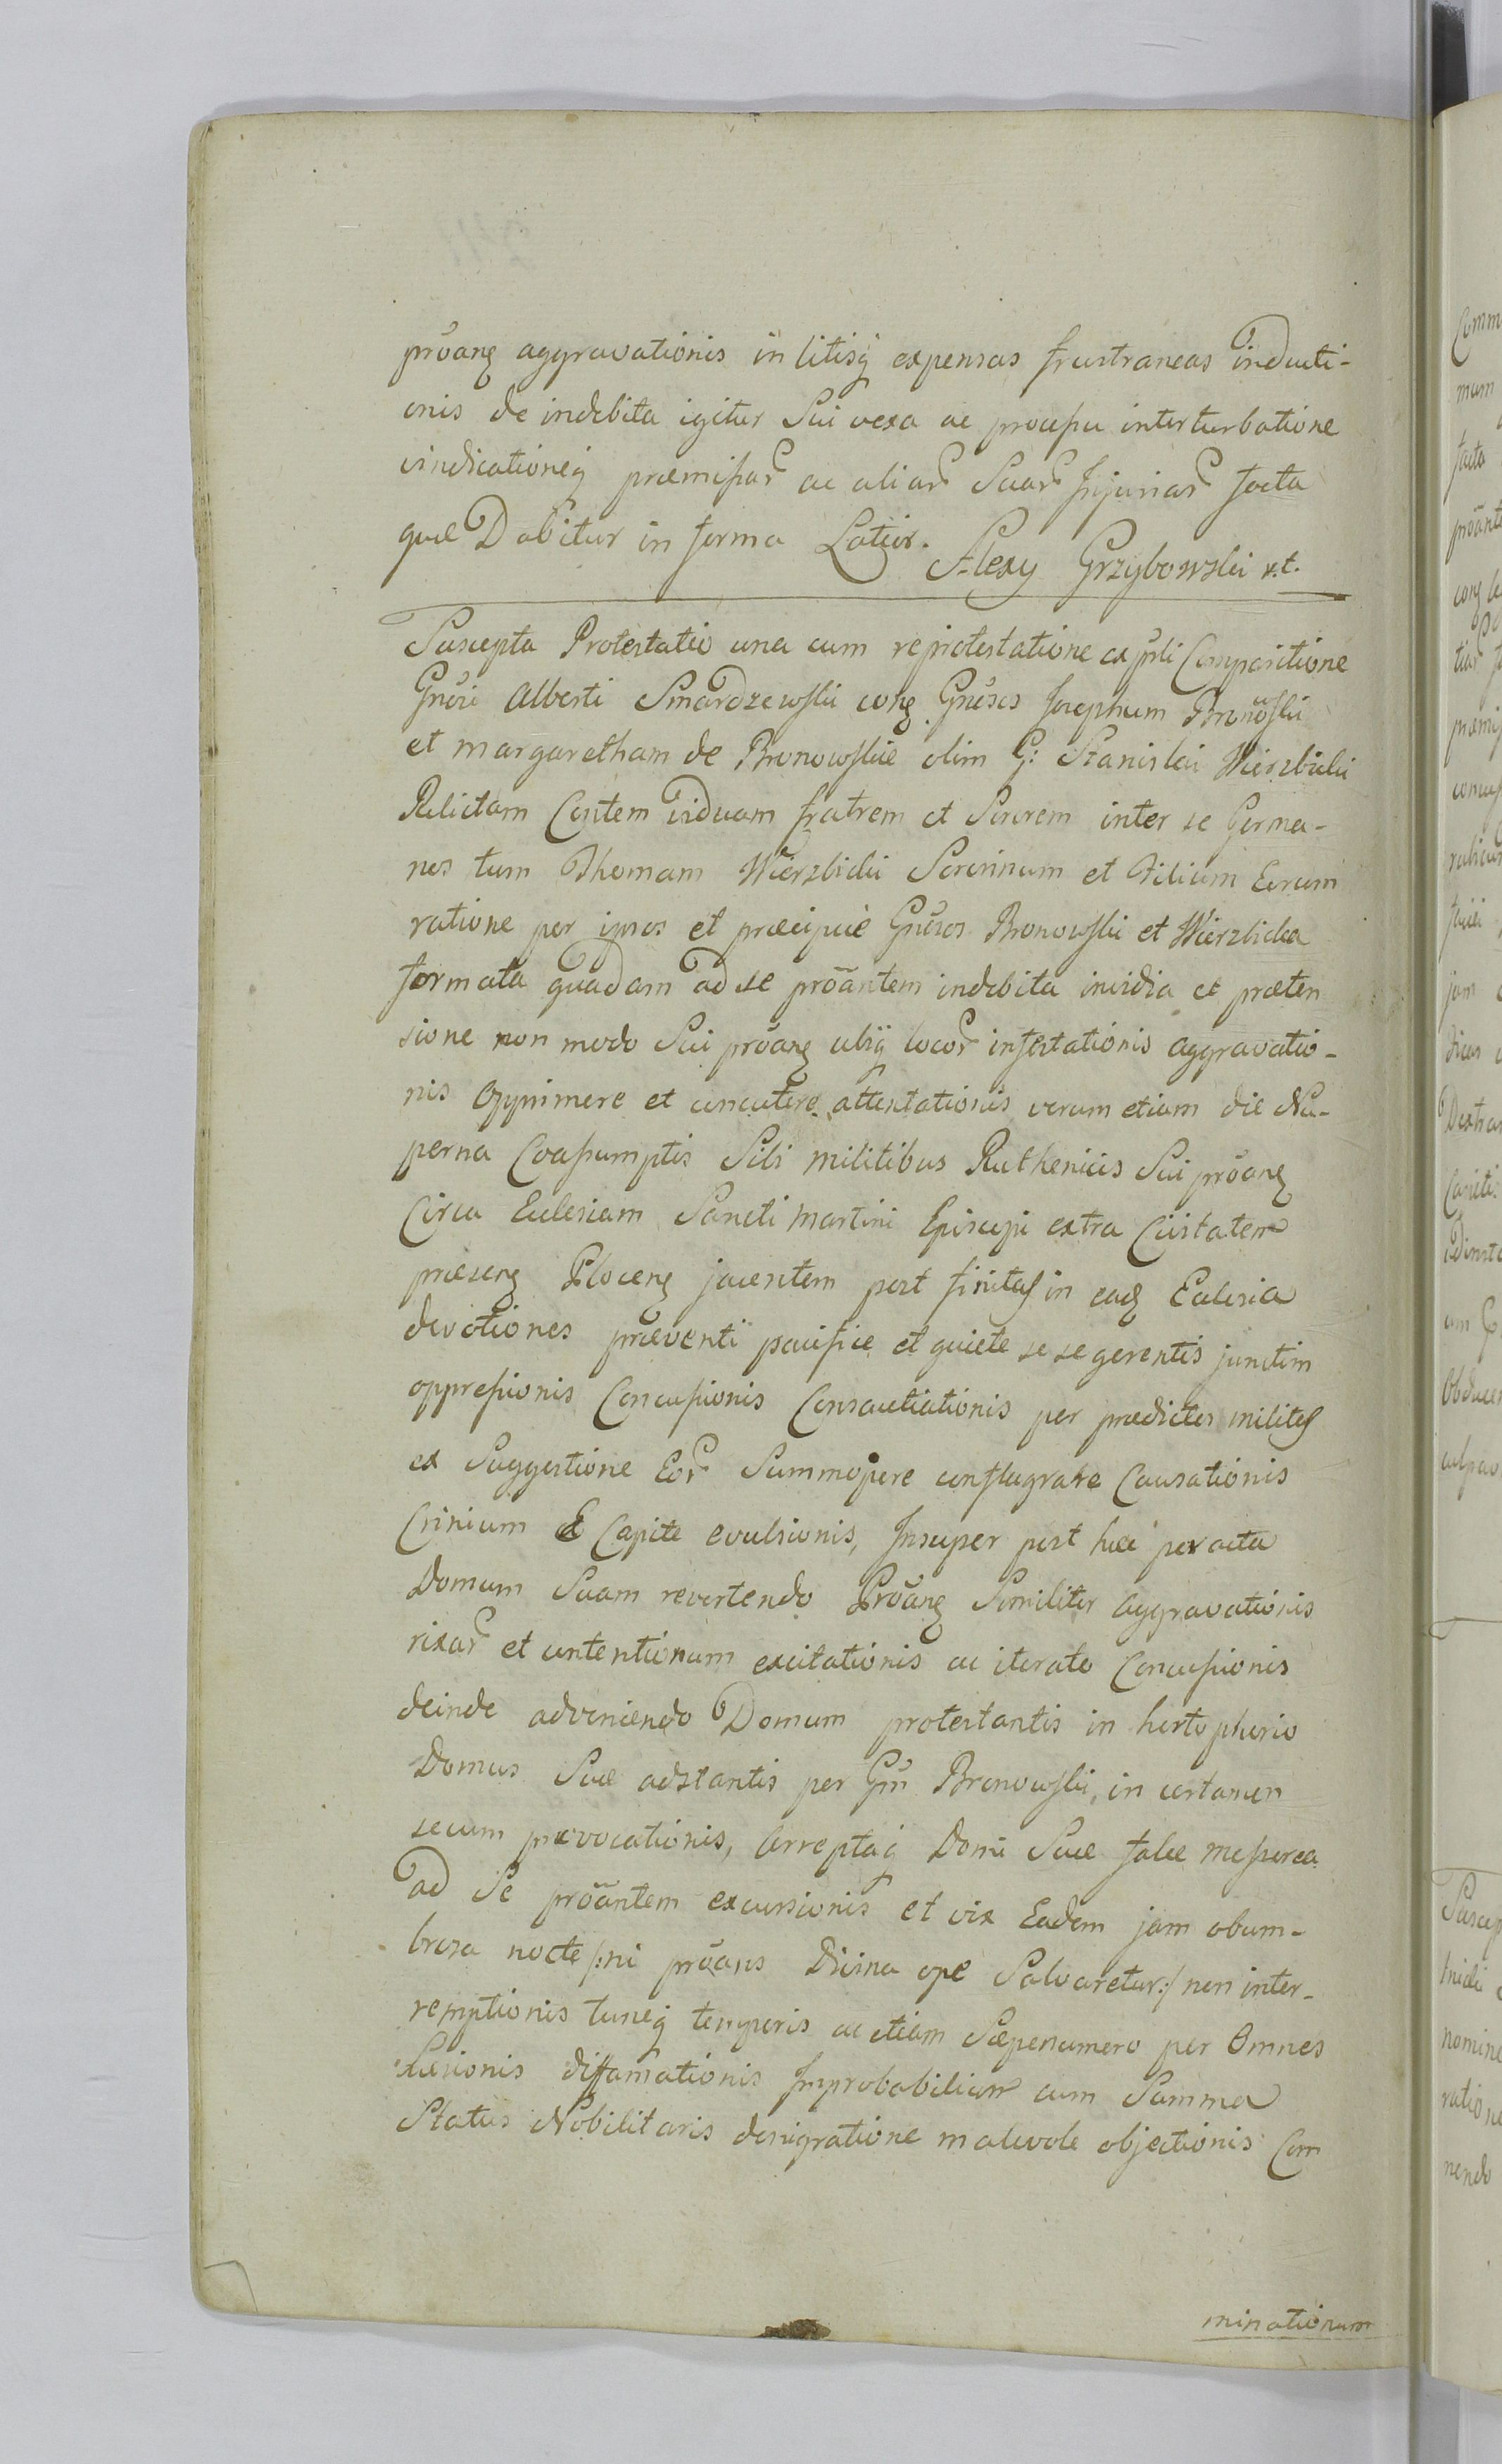 prõang aggravationis in litisq expensas frustraneas inducti-
onis de indebita igitur Sui vexa ac processu interturbatione
vindicationeq præmissar ac aliar Suar Injuriar facta
quæ Dabitur in forma Latior.
Alexy Grzybowski
Suscepta Protestatio una cum reprotestatione ex Compositione
Gñosi Alberti Smardzewski cong Gñosos Josephum Bronowski
et margaretham de Bronowskie olim G: Stanislai Wierzbicki
Relictam Cogtem viduam fratrem et Sororem inter se Germa-
nos tum Thomam Wierzbicki Sororinum et Filium Eorum
ratione per ipsos et præcipuè Gñosos Bronowski et Wierzbicka
formata quadam ad se prõantem indebita invidia et præten
sione non modo Sui prõang ubiq locor infestationis aggravatio-
nis Opprimere et concutere attentationis verum etiam die Nu-
perna Coassumptis Sibi militibus Ruthenicis Sui prõang
Circa Ecclesiam Sancti Martini Episcopi extra Civitatem
præseng Ploceng jacentem post finitas in eadg Eclesia
devotiones præventi pacifice et quiete se se gerentis junctim
oppressionis Concussionis Consauciationis per prædictos milites
ex Suggestione Eor Summopere conflagrare Causationis
Crinium E Capite evulsionis, Insuper post hæc peracta
Domum Suam revertendo Prõang Similiter aggravationis
rixar et contentionum excitationis ac iterato Concussionis
deinde adveniendo Domum protestantis in hosto phorio
Domus Suæ adstantis per Gm Bronowski, in certamen
secum provocationis, Arreptaq Domi Suæ falce messorea
ad Se prõantem excursionis et vix Eadem jam obum-
brosa nocte /:ni prõans Divina ope Salvaretur:/ non inter-
remptionis tuncq temporis ac etiam Sæpenumero per Omnes
Læsionis diffamationis Improbabilium cum Summa
Status Nobilitaris denigratione malevole objectionis Com
minationum